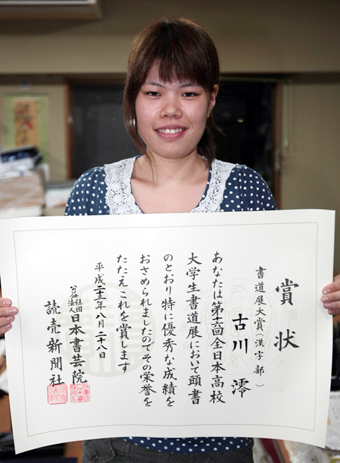 賞状
書道展大賞(漢字部)
古川 澪
あなたは第十六回全日本高校
大学生書道展において頭書
のとおり特に優秀な成績を
おさめられましたのでその栄誉を
たたえこれを賞します
平成二十三年八月二十八日
公益社団法人 日本書芸院
読売新聞社